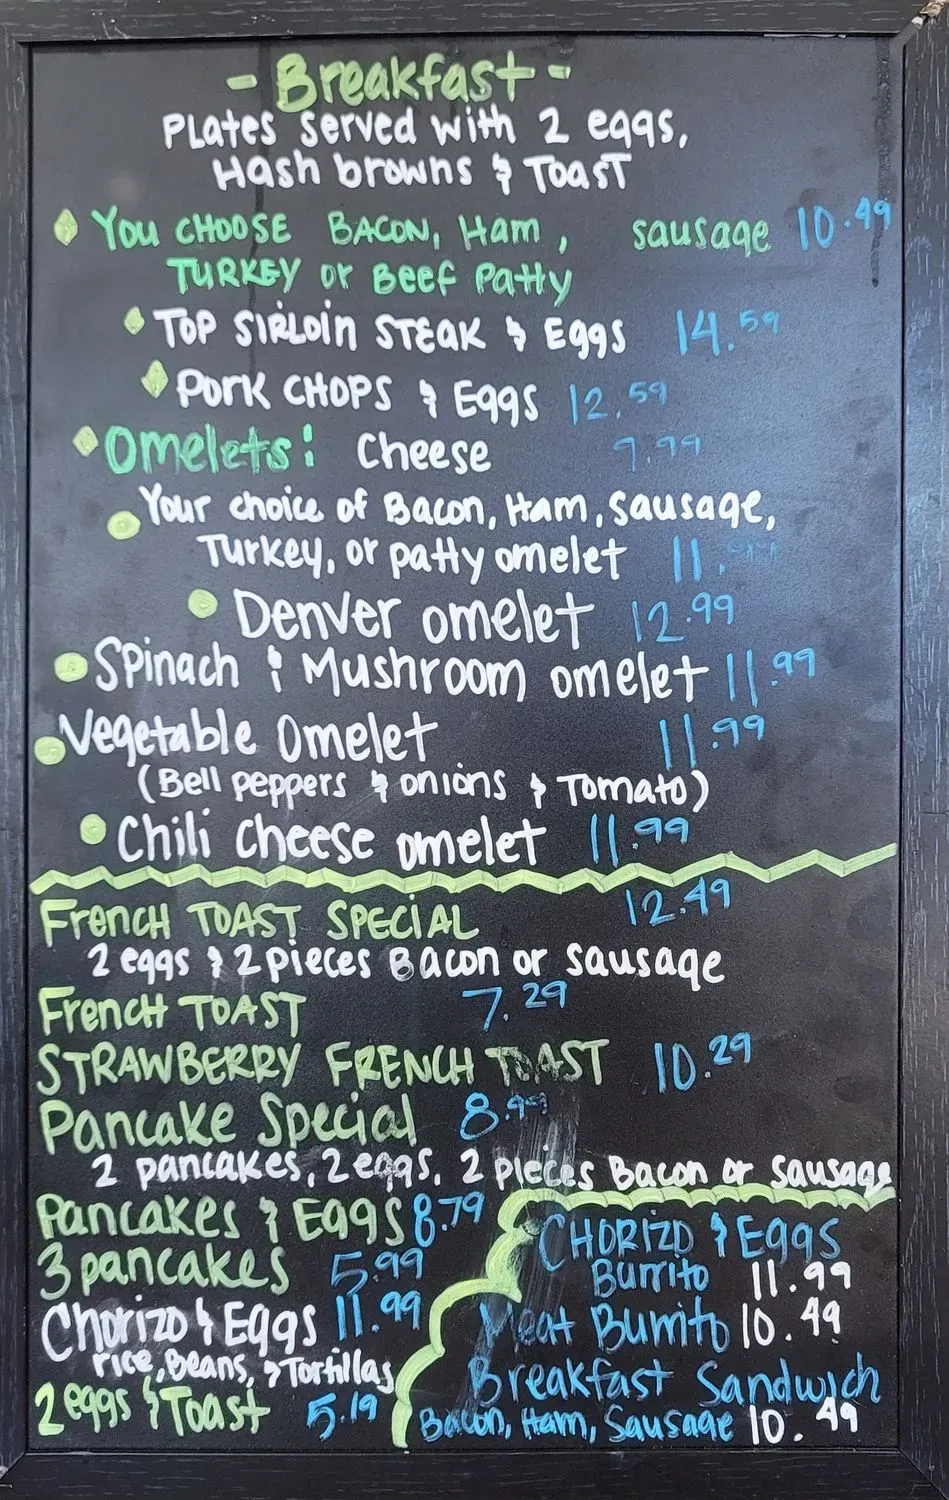 - Breakfast -
Plates served with 2 eggs,
Hash browns & Toast
You CHOOSE BACON, Ham, sausage 10.49
TURKEY or Beef Patty
TOP SIRLOIN STEAK & Eggs 14.59
PORK CHOPS & Eggs 12.59
Omelets: Cheese 9.99
Your choice of Bacon, Ham, sausage,
Turkey, or patty omelet 11.
Denver omelet 12.99
Spinach & Mushroom omelet 11.99
Vegetable Omelet 11.99
(Bell peppers & onions & Tomato)
Chili Cheese omelet 11.99
French TOAST SPECIAL 12.49
2 eggs & 2 pieces Bacon or sausage
French TOAST 7.29
STRAWBERRY FRENCH TOAST 10.29
Pancake Special 8.99
2 pancakes, 2 eggs, 2 pieces Bacon or sausage
Pancakes & EGGS 8.79
3 pancakes 5.99
Chorizo & Eggs 11.99
rice, Beans, & Tortillas
2 eggs & Toast 5.19
CHORIZO & EGGS
Burrito 11.99
Meat Burrito 10.49
Breakfast Sandwich
Bacon, Ham, Sausage 10.49